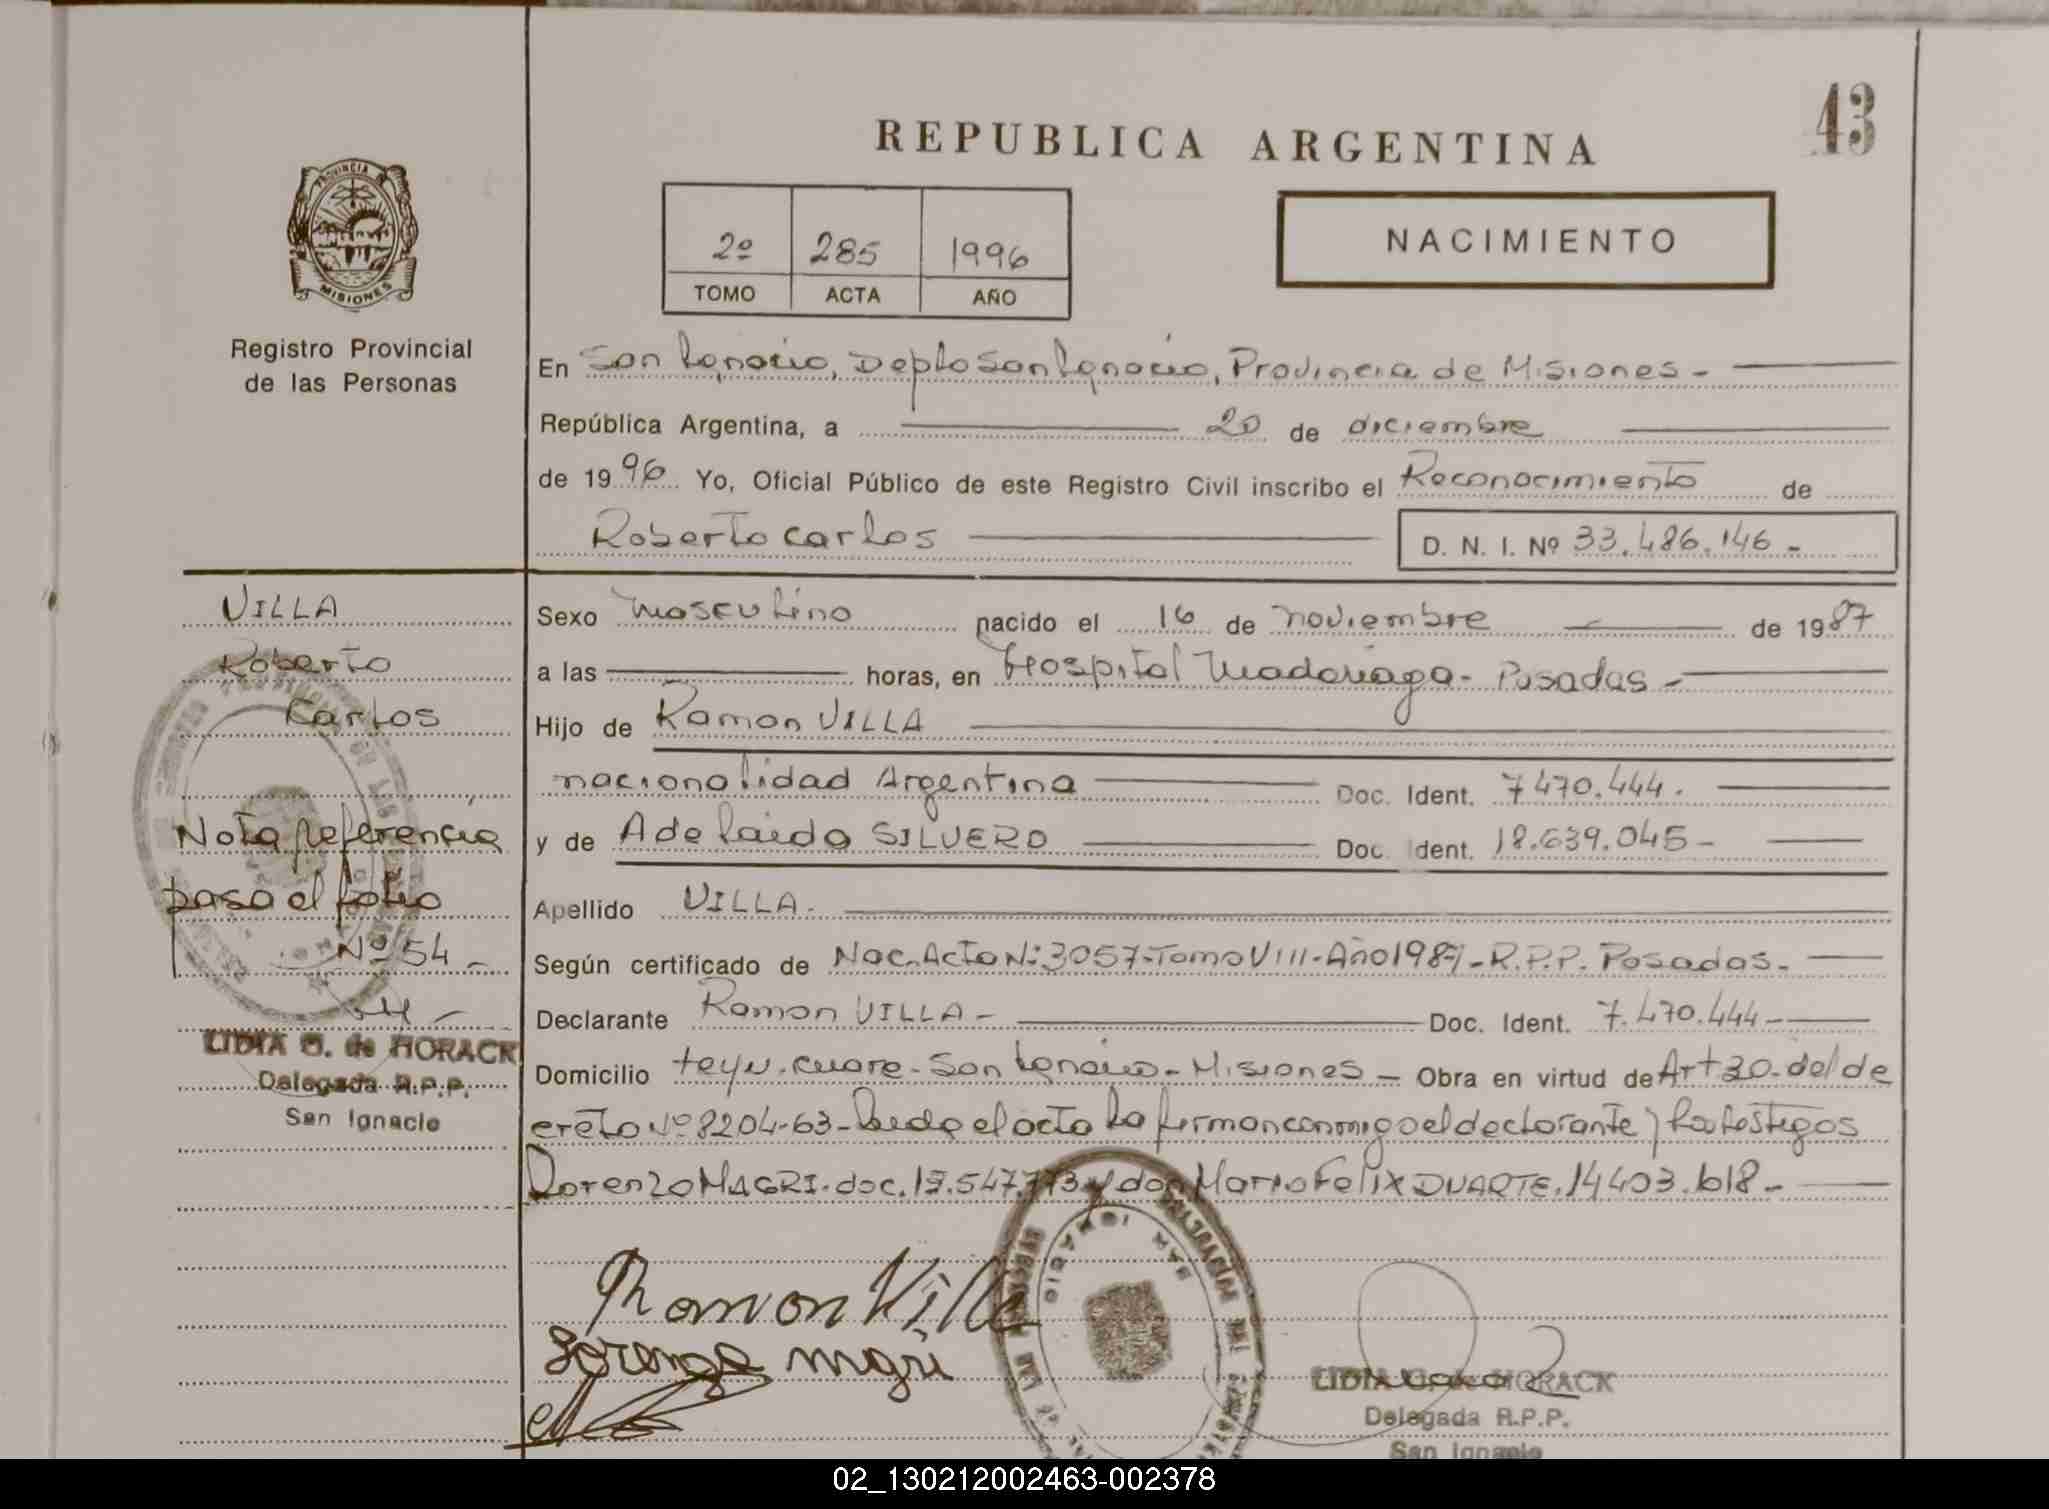 43
REPUBLICA ARGENTINA
PROVINCIA
MISIONES
2º 285 1996
TOMO ACTA AÑO
NACIMIENTO
Registro Provincial
de las Personas
En San Ignacio, Depto San Ignacio, Provincia de Misiones -
República Argentina, a 20 de diciembre
de 1996 Yo, Oficial Público de este Registro Civil inscribo el Reconocimiento de
Roberto Carlos
D. N. I. Nº 33.486.146 -
VILLA
Roberto
Carlos
Nota referencia
pasa el folio
Nº 54 -
LIDIA G. de HORACK
Delegada R.P.P.
San Ignacio
Sexo masculino nacido el 16 de noviembre de 1987
a las horas, en Hospital Madariaga - Posadas -
Hijo de Ramon VILLA
nacionalidad Argentina Doc. Ident. 7470.444.
y de Adelaida SILVERO Doc. Ident. 18.639.045 -
Apellido VILLA.
Según certificado de Nac. Acta Nº 3057-Tomo VIII-Año 1987-R.P.P. Posadas -
Declarante Ramon VILLA - Doc. Ident. 7.470.444 -
Domicilio teyu. cuare - San Ignacio - Misiones - Obra en virtud de Art 30 del de
creto Nº 8204-63 - Leida el acta la firman conmigo el declarante y los testigos
Lorenzo MAGRI. doc. 547.773 y don Mario Felix DUARTE. 14403.618 -
Ramon Villa
Lorenzo magri
SAN IGNACIO
LIDIA G. de HORACK
Delegada R.P.P.
San Ignacio
02_130212002463-002378